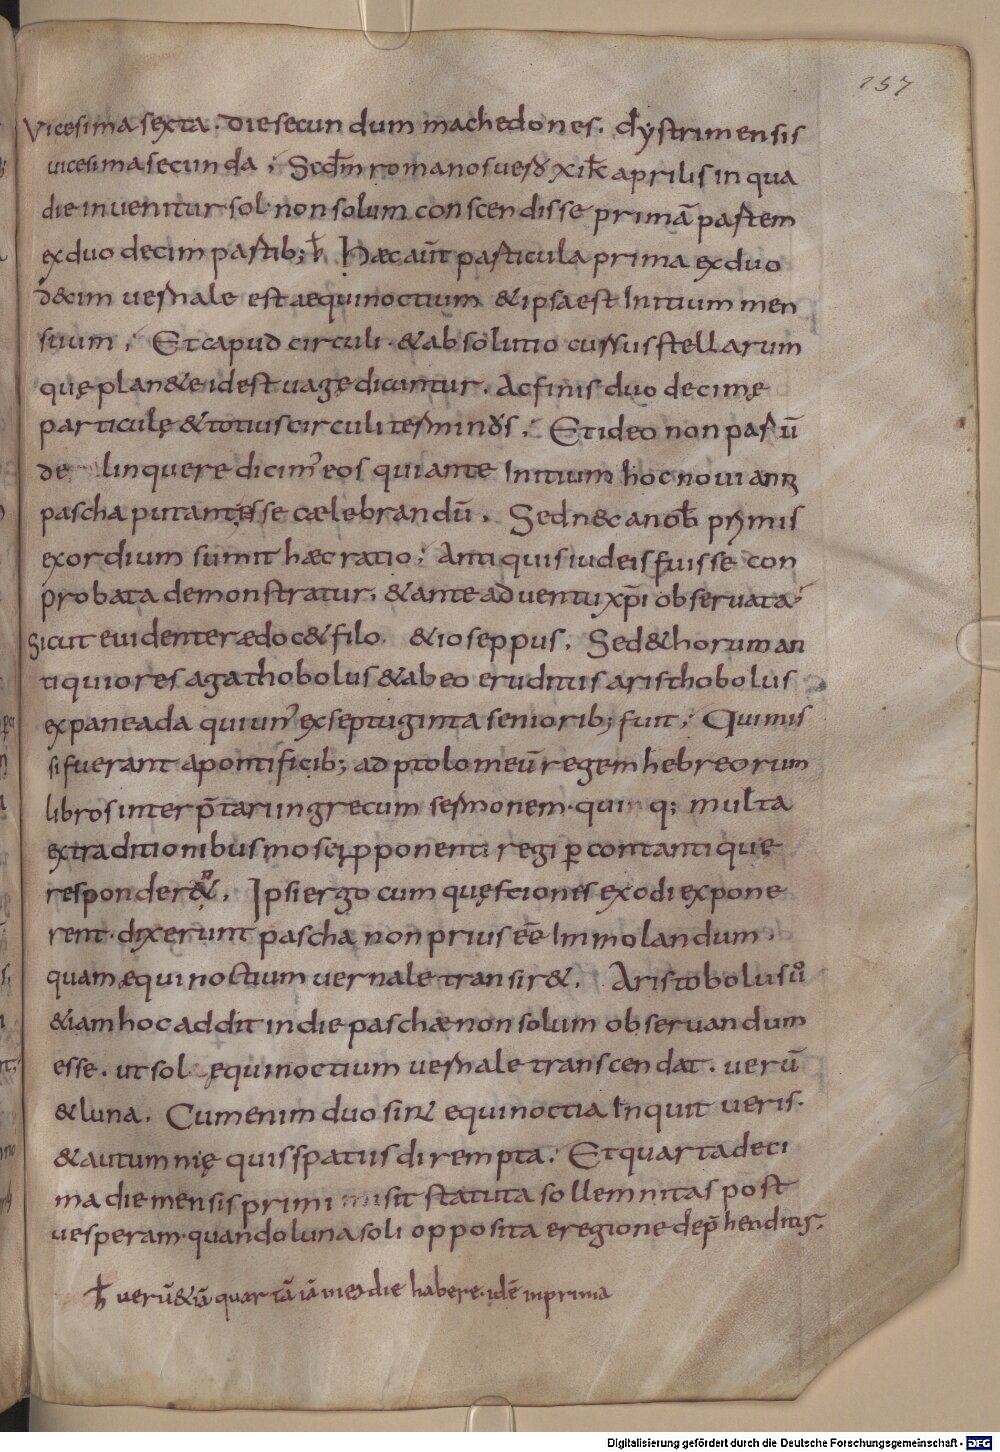 157
vicesima sexta. Die secundum machedones. dystri mensis
vicesima secunda; Secdm romanos vero xi kł aprilis in qua
die invenitur sol. non solum conscendisse primā partem
ex duodecim partib; h̄ Haec aūt particula prima ex duo
d&cim vernale est aequinoctium & ipsa est Initium men
suum; Et caput circuli & absolutio cursus stellarum
quę plan&e id est vagę dicuntur. Ac finis duodecimę
particulę & totius circuli terminus; Et ideo non parū
de linquere dicim' eos qui ante Initium hoc novi anni
pascha putant esse cælebrandū. Sed nec a nob primis
exordium sumit haec ratio; Antiquis iudeis fuisse con
probata demonstratur. & ante adventu xp̄i observata
Sicut evidenter ædoc& filo. & ioseppus. Sed & horum an
tiquiores agathobolus & ab eo eruditus aristhobolus
ex paneada qui un' ex septuginta seniorib; fuit; Qui mis
si fuerant a pontificib; ad ptolomeū regem hebreorum
libros interp̄tari in grecum sermonem. qui q; multa
ex traditionibus mosei pponenti regi p contanti que
responder&. Ipsi ergo cum quęstiones exodi expone
rent. dixerunt pascha non prius eē Immolandum.
quam æquinoctium vernale transir&. Aristobolus ů
&iam hoc addit in die paschæ non solum observandum
esse. ut sol ęquinoctium vernale transcendat. verū
& luna. Cum enim duo sint equinoctia Inquit veris.
& autumnię quis spatiis dirempta; Et quarta deci
ma die mensis primi sit statuta sollemnitas post
vesperam. quando luna soli opposita e regione dep̄henditur.
h̄ verū &iā quartā iā in ea die habere. idē in prima
Digitalisierung gefördert durch die Deutsche Forschungsgemeinschaft - DFG